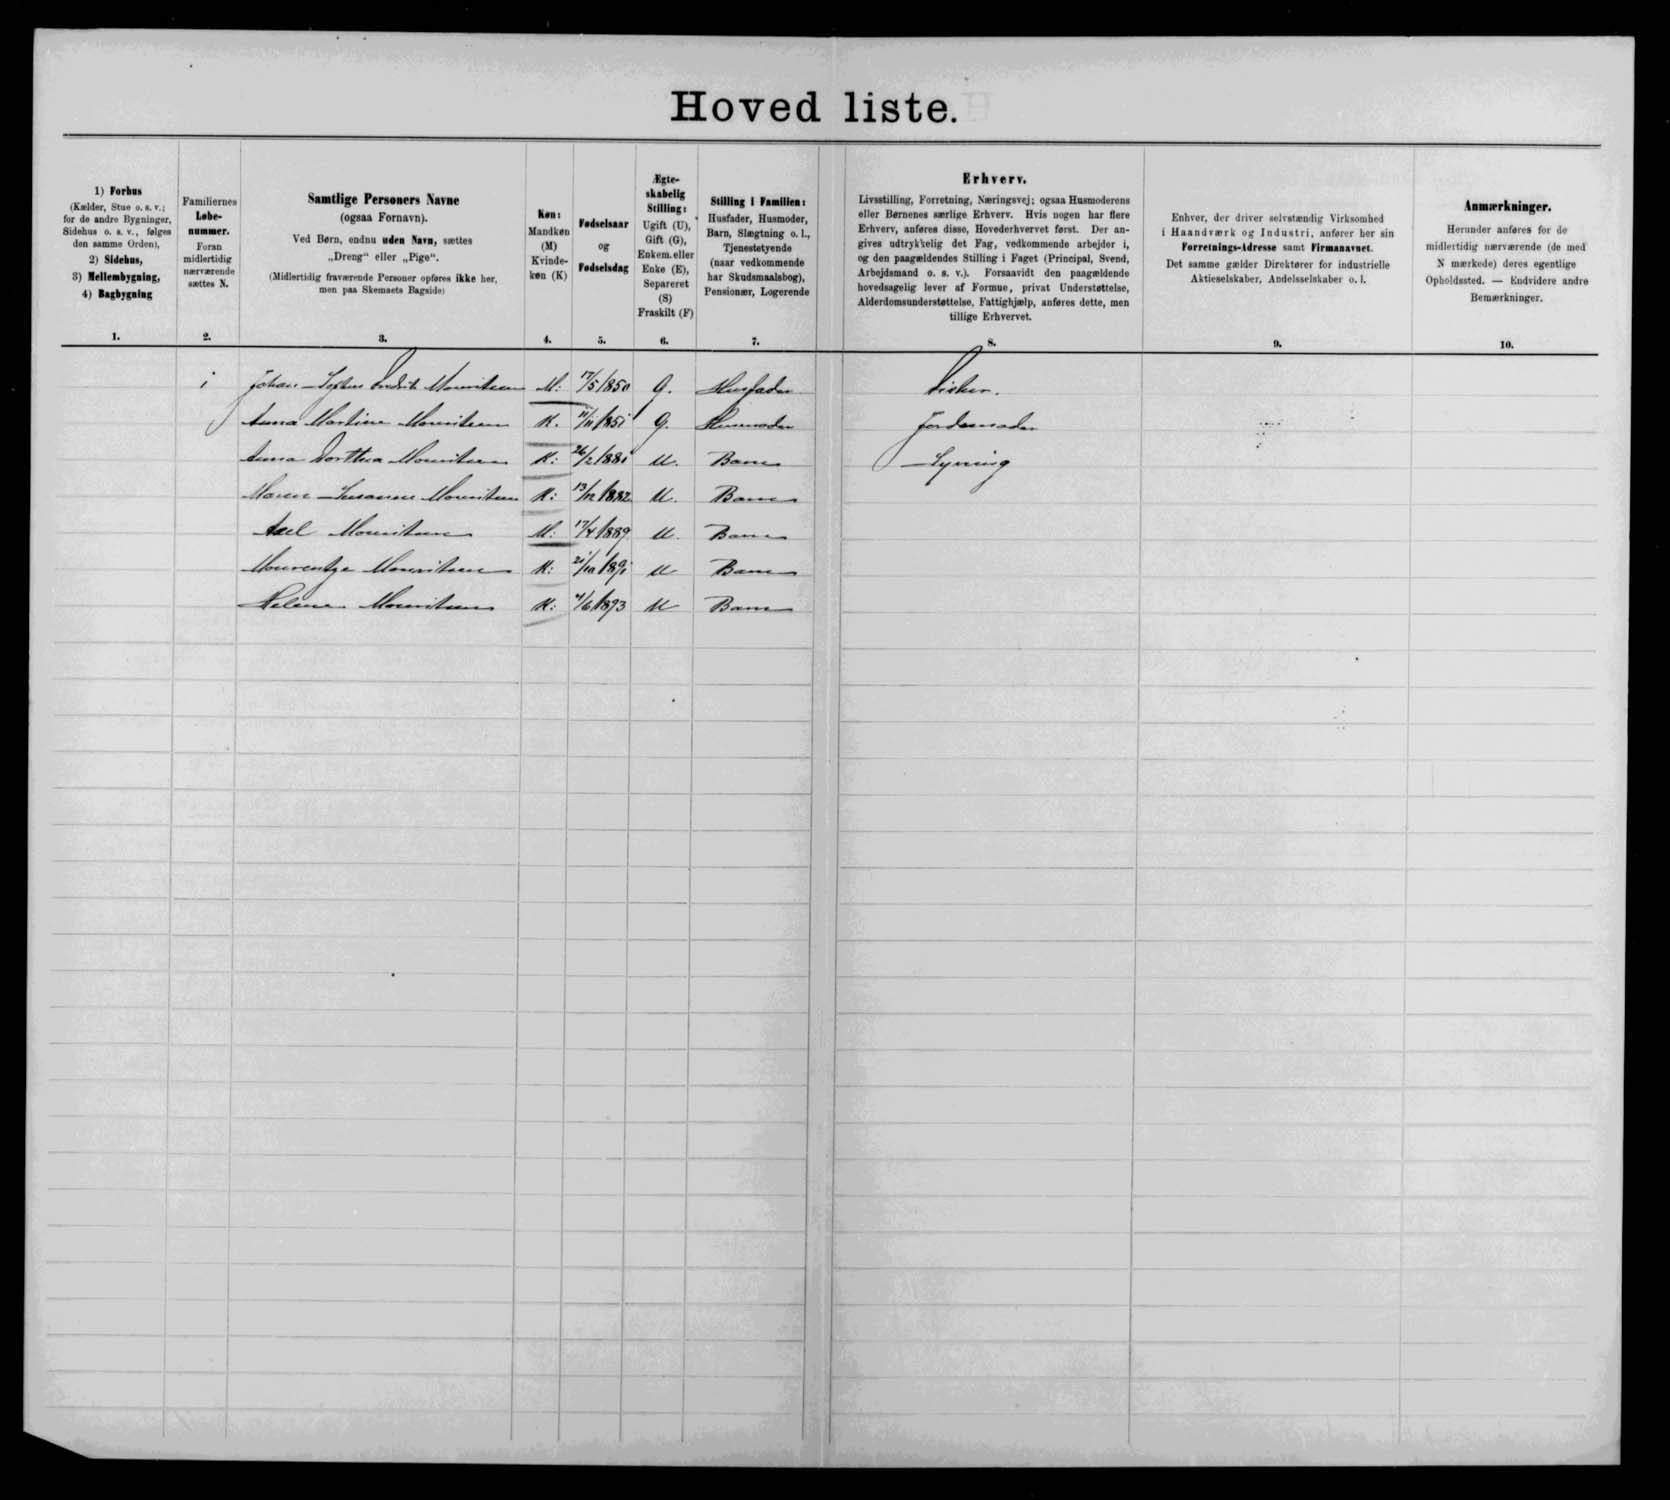 Hoved liste.
1) Forhus
(Kælder, Stue o. s. v.;
for de andre Bygninger,
Sidehus o. s. v., følges
den samme Orden),
2) Sidehus,
3) Mellembygning,
4) Bagbygning
1.
Familiernes
Løbe-
nummer.
Foran
midlertidig
nærværende
sættes N.
2.
Samtlige Personers Navne
(ogsaa Fornavn).
Ved Børn, endnu uden Navn, sættes
„Dreng“ eller „Pige“.
(Midlertidig fraværende Personer opføres ikke her,
men paa Skemaets Bagside)
3.
Køn:
Mandkøn
(M)
Kvinde-
køn (K)
4.
Fødselsaar
og
Fødselsdag
5.
Ægte-
skabelig
Stilling:
Ugift (U),
Gift (G),
Enkem. eller
Enke (E),
Separeret
(S)
Fraskilt (F)
6.
Stilling i Familien:
Husfader, Husmoder,
Barn, Slægtning o. l.,
Tjenestetyende
(naar vedkommende
har Skudsmaalsbog),
Pensionær, Logerende
7.
Erhverv.
Livsstilling, Forretning, Næringsvej; ogsaa Husmoderens
eller Børnenes særlige Erhverv. Hvis nogen har flere
Erhverv, anføres disse, Hovederhvervet først. Der an-
gives udtrykkelig det Fag, vedkommende arbejder i,
og den paagældendes Stilling i Faget (Principal, Svend,
Arbejdsmand o. s. v.). Forsaavidt den paagældende
hovedsagelig lever af Formue, privat Understøttelse,
Alderdomsunderstøttelse, Fattighjælp, anføres dette, men
tillige Erhvervet.
8.
Enhver, der driver selvstændig Virksomhed
i Haandværk og Industri, anfører her sin
Forretnings-Adresse samt Firmanavnet.
Det samme gælder Direktører for industrielle
Aktieselskaber, Andelsselskaber o. l.
9.
Anmærkninger.
Herunder anføres for de
midlertidig nærværende (de med
N mærkede) deres egentlige
Opholdssted. — Endvidere andre
Bemærkninger.
10.
1 Johan Sophus Fredrik Mouritsen M: 17/5 1850 G. Husfader Fisker.
Anna Martine Mouritsen K. 11/11 1851 G. Husmoder Jordemoder
Anna Dorthea Mouritsen K: 26/2 1881 U. Barn Syening
Maren Susanne Mouritsen K: 13/12 1882 U. Barn
Axel Mouritsen M: 17/4 1889 U. Barn
Mouritsen K: 21/10 1891 U Barn
Helene Mouritsen K: /6 1893 U Barn